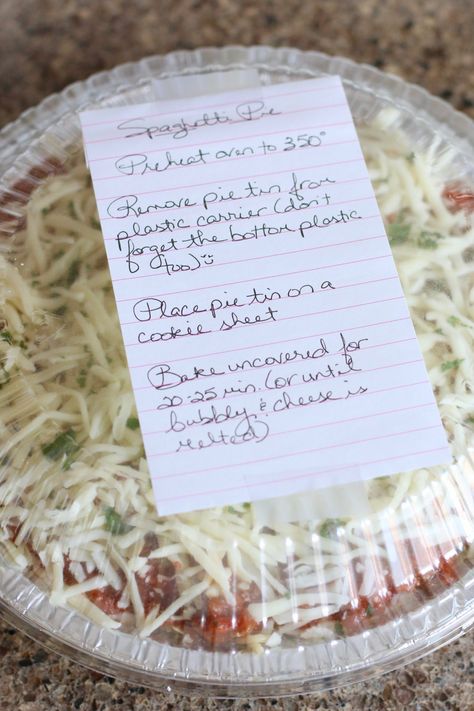 Spaghetti Pie
Preheat oven to 350°
Remove pie tin from
plastic carrier (don't
forget the bottom plastic
too) ☺
Place pie tin on a
cookie sheet
Bake uncovered for
20-25 min. (or until
bubbly & cheese is
melted)